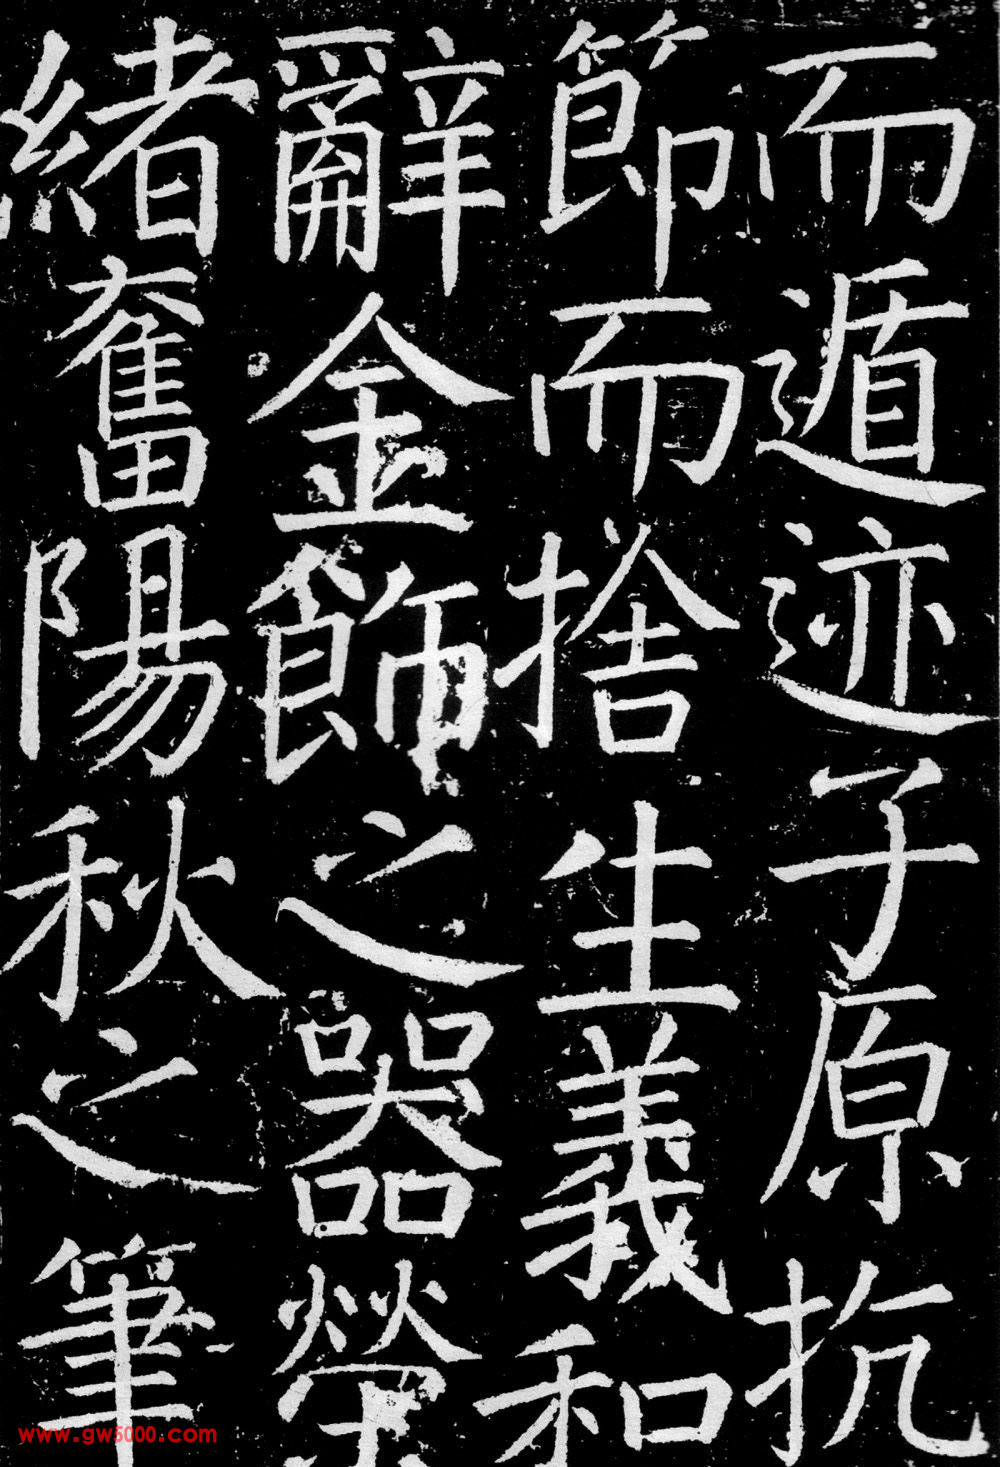 而遁迹子原抗
節而捨生義和
辭金飾之器榮
緒奮陽秋之筆
www.gw5000.com